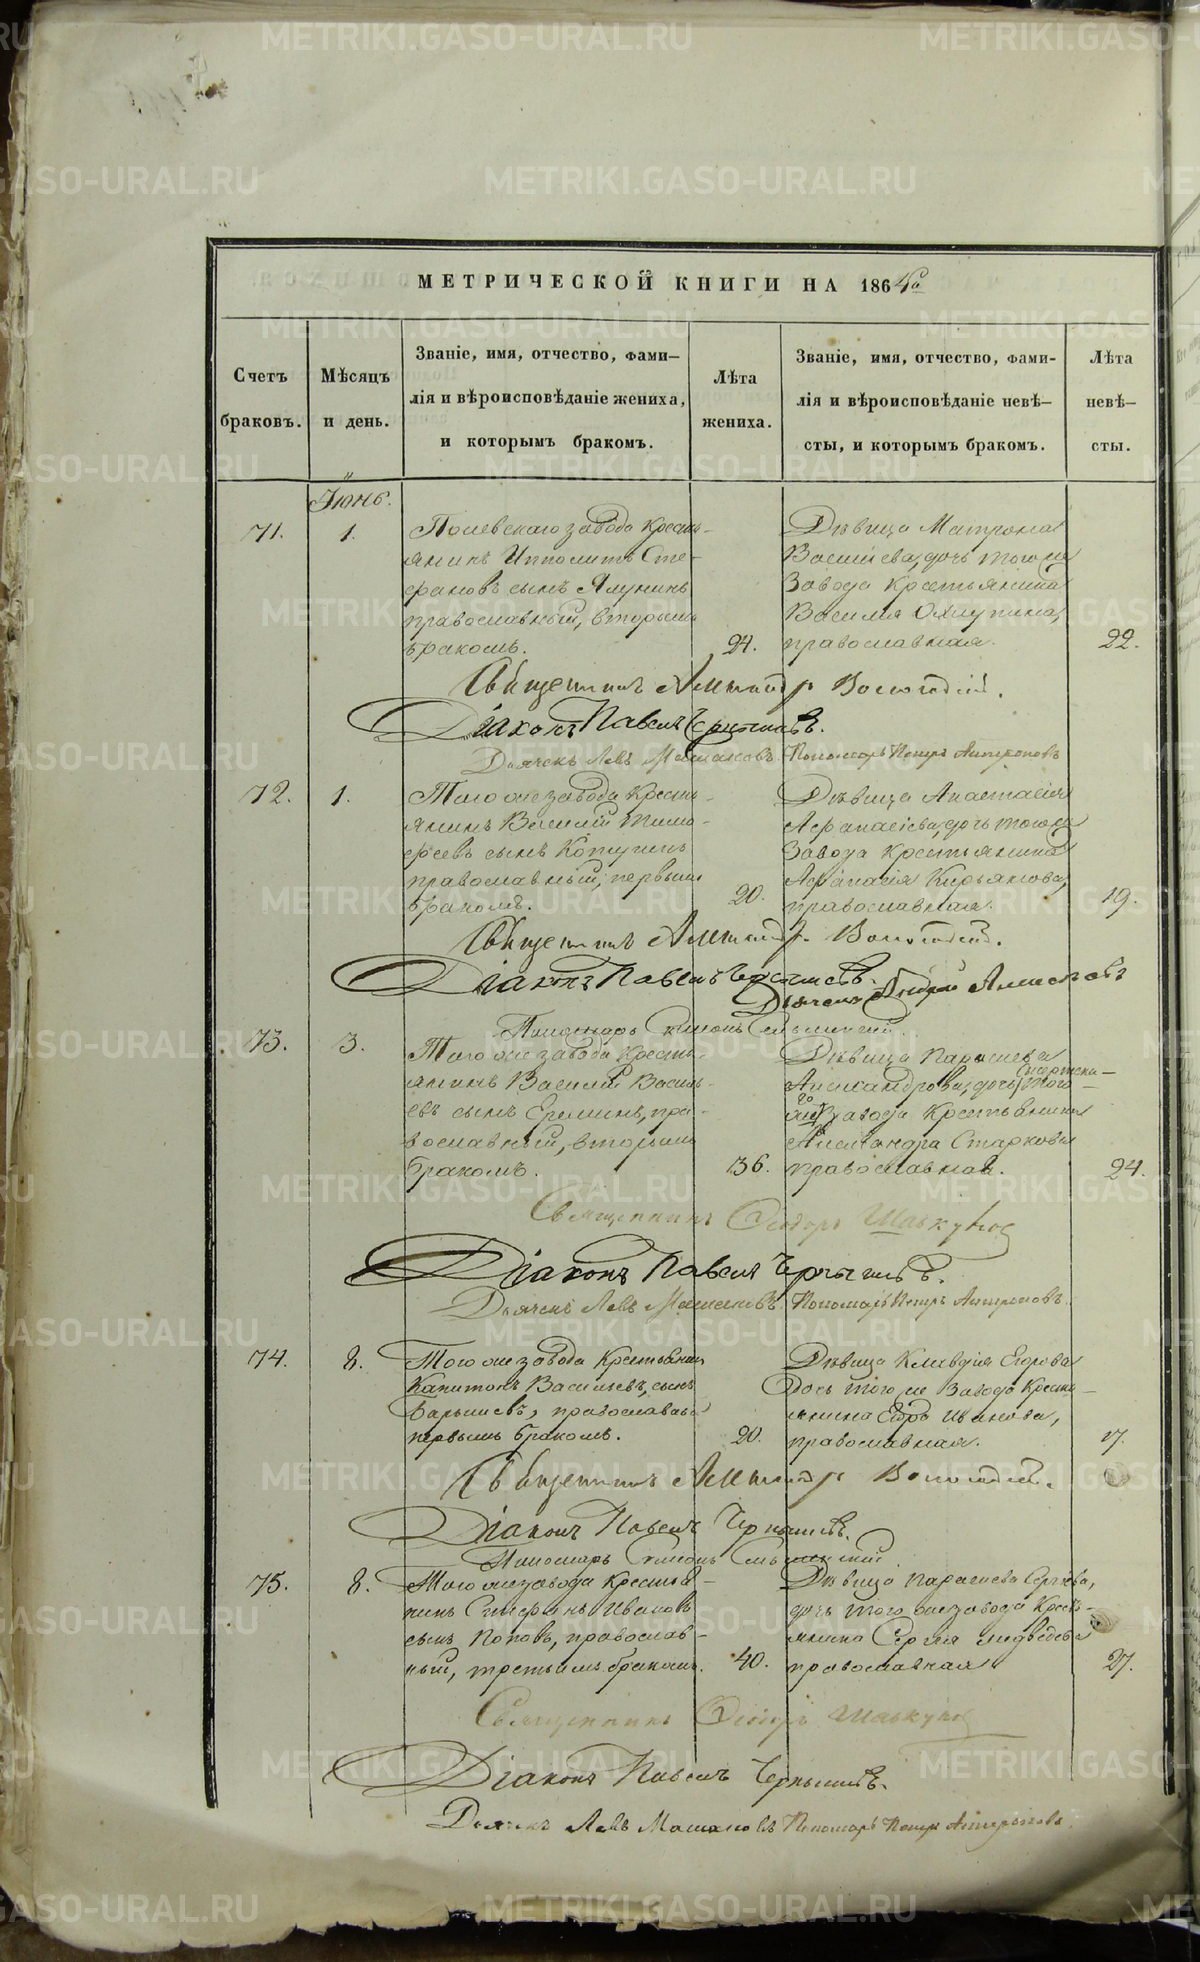 МЕТРИЧЕСКОЙ КНИГИ НА 1864 го
Счетъ браковъ.
Мѣсяцъ и день.
Званіе, имя, отчество, фами-
лія и вѣроисповѣданіе жениха,
и которымъ бракомъ.
Лѣта жениха.
Званіе, имя, отчество, фами-
лія и вѣроисповѣданіе невѣ-
сты, и которымъ бракомъ.
Лѣта невѣ-
сты.
Іюнь.
71.
1.
Полевскаго завода кресть-
янинъ Ипполитъ Сте-
фановъ сынъ Ялунинъ
православный, вторымъ
бракомъ.
24.
Дѣвица Матрона
Васильева, дочь того же
завода крестьянина
Василія Охлупина,
православная.
22.
Священникъ Александръ
Діаконъ Павелъ Чернышевъ.
Дьячекъ Левъ Пономарь Петръ
72.
1.
Того же завода кресть-
янинъ Василій Тимо-
феевъ сынъ
православный, первымъ
бракомъ.
20.
Дѣвица Анастасія
Афанасіева, дочь того же
завода крестьянина
Афанасія Кирьякова,
православная.
19.
Священникъ Александръ
Діаконъ Павелъ Чернышевъ.
Дьячекъ Андрей
Пономарь Симеонъ
73.
3.
Того же завода кресть-
янинъ Василій Василь-
евъ сынъ Ереминъ, пра-
вославный, вторымъ
бракомъ.
36.
Дѣвица Параскева
Александрова, дочь
завода крестьянина
Александра Старкова
православная.
24.
Священникъ Феодоръ
Діаконъ Павелъ Чернышевъ.
Дьячекъ Левъ Пономарь Петръ
74.
8.
Того же завода крестьянинъ
Капитонъ Васильевъ сынъ
православный
первымъ бракомъ.
20.
Дѣвица Клавдія Егорова
дочь того же завода кресть-
янина Егора Иванова,
православная.
17.
Священникъ Александръ
Діаконъ Павелъ Чернышевъ.
Пономарь Симеонъ
75.
8.
Того же завода крестья-
нинъ Стефанъ Ивановъ
сынъ Поповъ, православ-
ный, третьимъ бракомъ.
40.
Дѣвица Параскева Сергѣева,
дочь того же завода кресть-
янина Сергія Медведева
православная
27.
Священникъ Феодоръ
Діаконъ Павелъ Чернышевъ.
Дьячекъ Левъ Пономарь Петръ
METRIKI.GASO-URAL.RU